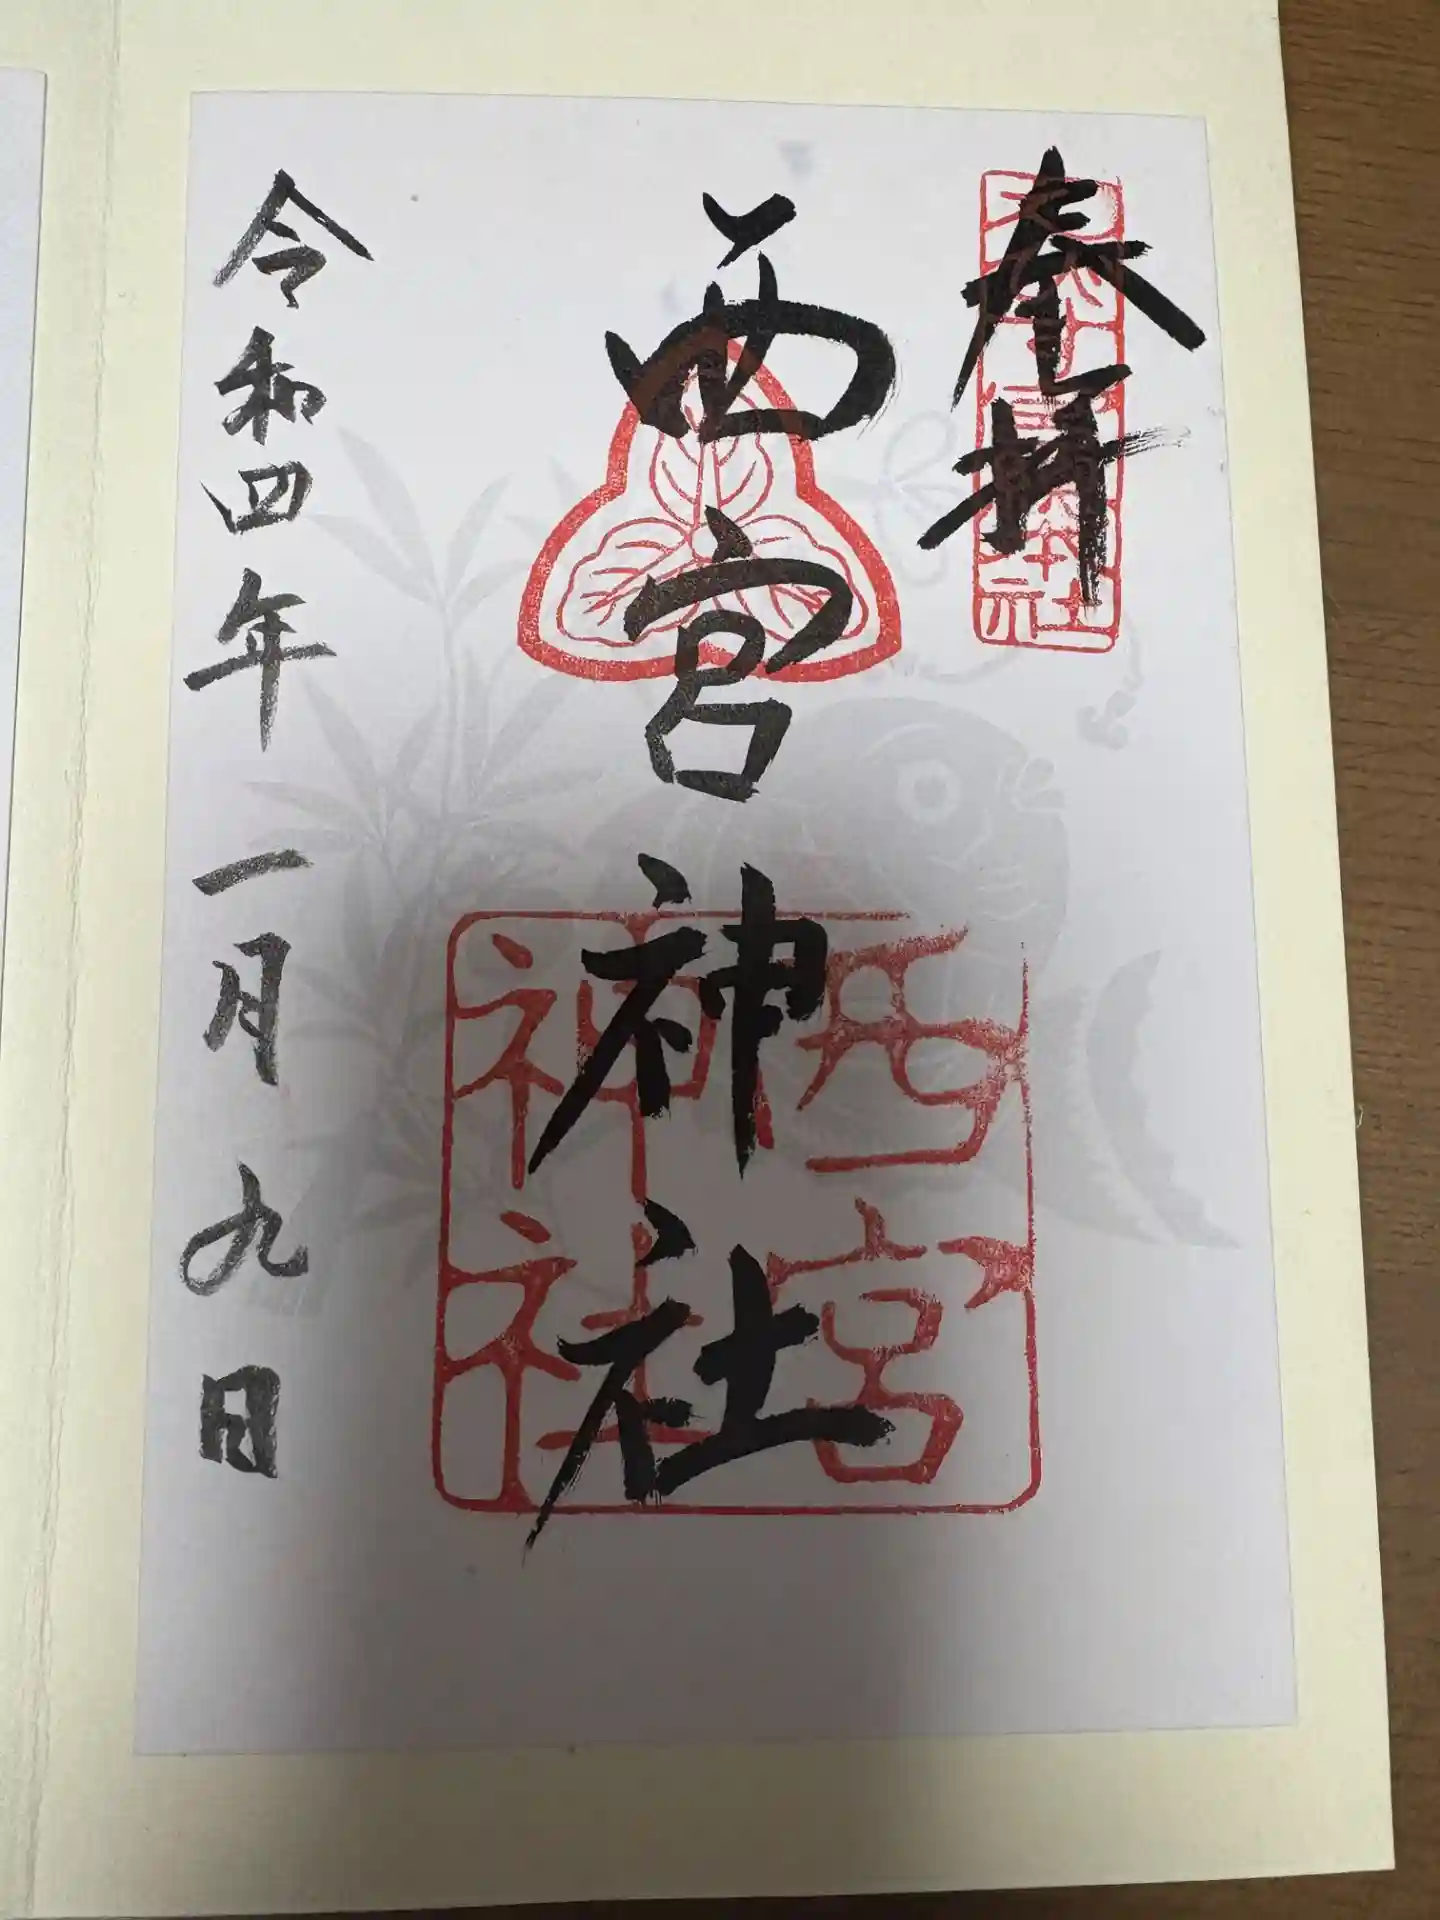 奉拝
西宮神社
西宮
神社
令和四年一月九日